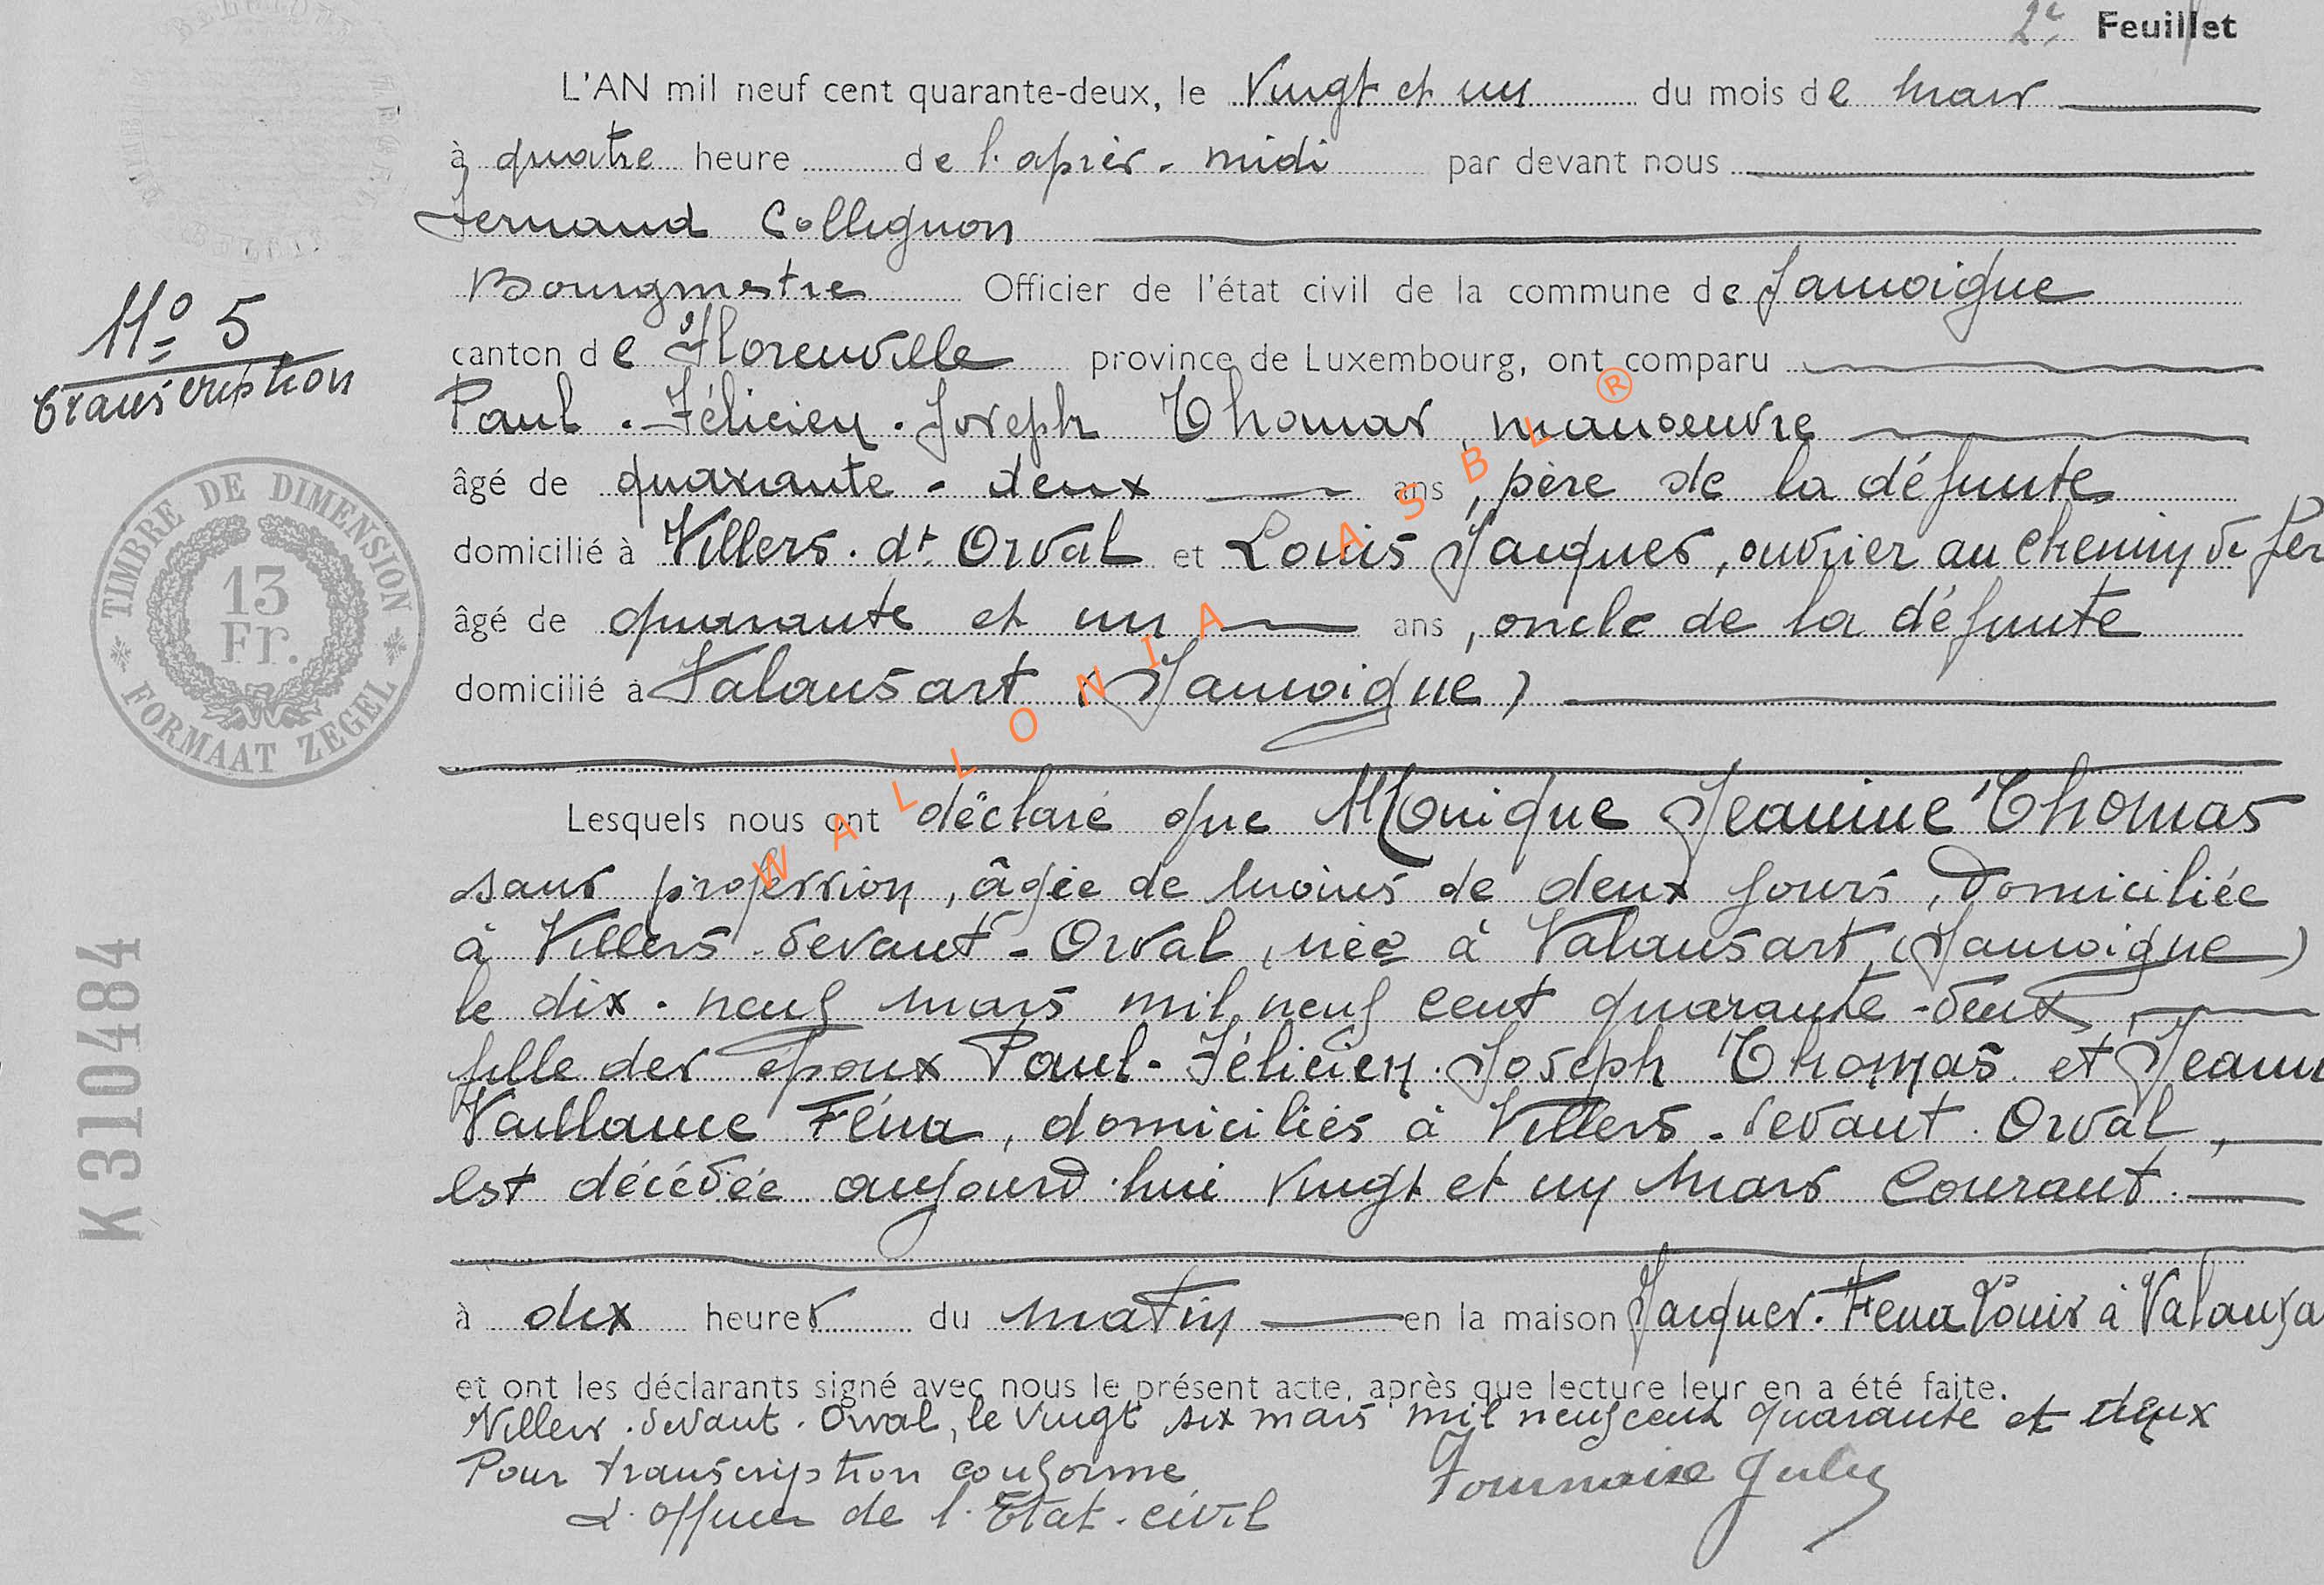 2e Feuillet
L'AN mil neuf cent quarante-deux, le Vingt et un du mois de mars
à quatre heure de l'après-midi par devant nous
Fernand Collignon
Bourgmestre Officier de l'état civil de la commune de Jamoigne
N° 5
transcription
canton de Florenville province de Luxembourg, ont comparu
Paul-Félicien-Joseph Thomas, manoeuvre
âgé de quarante-deux ans, père de la défunte
domicilié à Villers-dt-Orval et Louis Jacques, ouvrier au chemin de fer
âgé de quarante et un ans, oncle de la défunte
domicilié à Valansart (Jamoigne)
TIMBRE DE DIMENSION
13
Fr.
FORMAAT ZEGEL
WALLONIA ASBL ®
Lesquels nous ont déclaré que Monique Jeanine Thomas
sans profession, âgée de moins de deux jours, domiciliée
à Villers-devant-Orval, née à Valansart, (Jamoigne)
le dix-neuf mars mil neuf cent quarante-deux
fille des époux Paul-Félicien-Joseph Thomas et Jeanne
Vaillance Féna, domiciliés à Villers-devant-Orval,
est décédée aujourd'hui vingt et un mars courant.
K 310484
à dix heures du matin en la maison Jacques-Fena Louis à Valansa
et ont les déclarants signé avec nous le présent acte, après que lecture leur en a été faite.
Villers-devant-Orval, le vingt six mars mil neuf cent quarante et deux
Pour transcription conforme
L'officier de l'Etat-civil